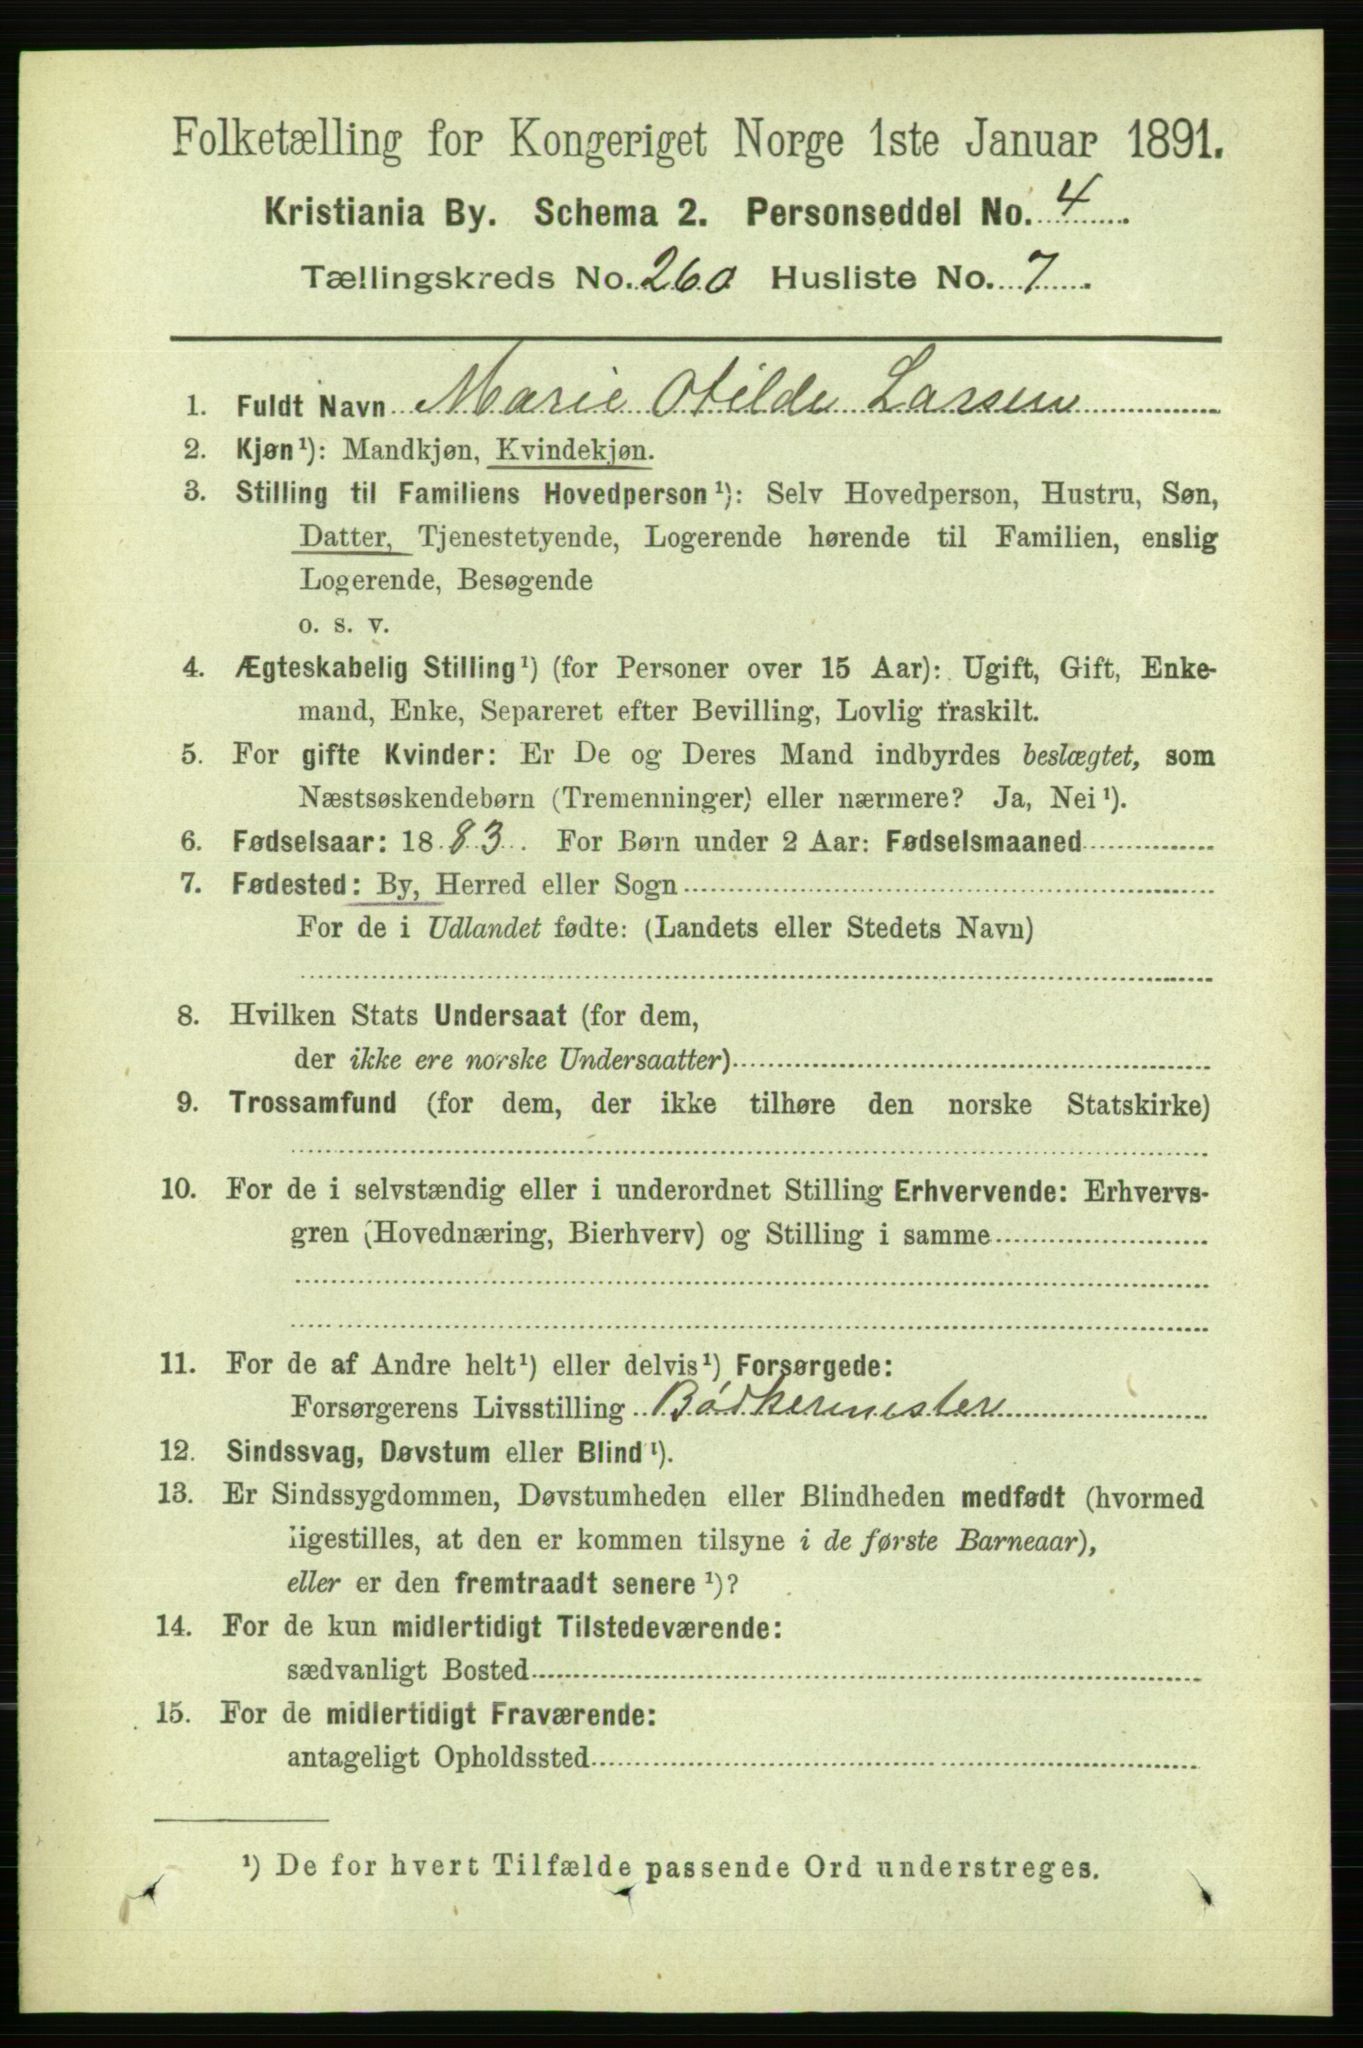 Folketælling for Kongeriget Norge 1ste Januar 1891.
Kristiania By. Schema 2. Personseddel No. 4
Tællingskreds No. 260 Husliste No. 7
1. Fuldt Navn Marie Otilde Larsen
2. Kjøn¹): Mandkjøn, Kvindekjøn.
3. Stilling til Familiens Hovedperson¹): Selv Hovedperson, Hustru, Søn,
Datter, Tjenestetyende, Logerende hørende til Familien, enslig
Logerende, Besøgende
o. s. v.
4. Ægteskabelig Stilling¹) (for Personer over 15 Aar): Ugift, Gift, Enke-
mand, Enke, Separeret efter Bevilling, Lovlig fraskilt.
5. For gifte Kvinder: Er De og Deres Mand indbyrdes beslægtet, som
Næstsøskendebørn (Tremenninger) eller nærmere? Ja, Nei¹).
6. Fødselsaar: 1883. For Børn under 2 Aar: Fødselsmaaned
7. Fødested: By, Herred eller Sogn
For de i Udlandet fødte: (Landets eller Stedets Navn)
8. Hvilken Stats Undersaat (for dem,
der ikke ere norske Undersaatter)
9. Trossamfund (for dem, der ikke tilhøre den norske Statskirke)
10. For de i selvstændig eller i underordnet Stilling Erhvervende: Erhvervs-
gren (Hovednæring, Bierhverv) og Stilling i samme
11. For de af Andre helt¹) eller delvis¹) Forsørgede:
Forsørgerens Livsstilling Bødkermester
12. Sindssvag, Døvstum eller Blind¹).
13. Er Sindssygdommen, Døvstumheden eller Blindheden medfødt (hvormed
ligestilles, at den er kommen tilsyne i de første Barneaar),
eller er den fremtraadt senere¹)?
14. For de kun midlertidigt Tilstedeværende:
sædvanligt Bosted
15. For de midlertidigt Fraværende:
antageligt Opholdssted
¹) De for hvert Tilfælde passende Ord understreges.